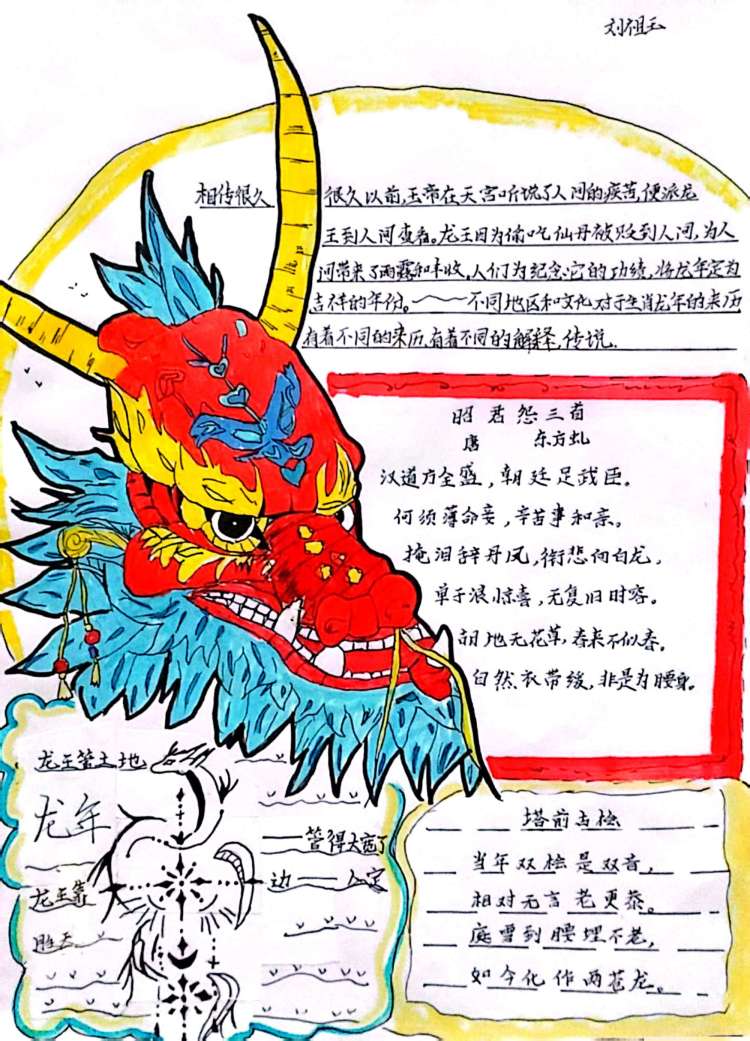 刘祖玉
相传很久 很久以前,玉帝在天宫听说了人间的疾苦,便派龙
王到人间查看。龙王因为偷吃仙丹被贬到人间,为人
间带来了雨露和丰收,人们为纪念它的功绩,将龙年定为
吉祥的年份。——不同地区和文化对于生肖龙年的来历
有着不同的来历,有着不同的解释,传说.
昭君怨三首
唐 东方虬
汉道方全盛,朝廷足武臣。
何须薄命妾,辛苦事和亲。
掩泪辞丹凤,衔悲向白龙,
单于浪惊喜,无复旧时容。
胡地无花草,春来不似春。
自然衣带缓,非是为腰身。
龙王管土地
龙年
龙王靠
——管得太宽了
边——
塔前古桧
当年双桧是双童,
相对无言老更恭。
庭雪到腰埋不老,
如今化作两苍龙。